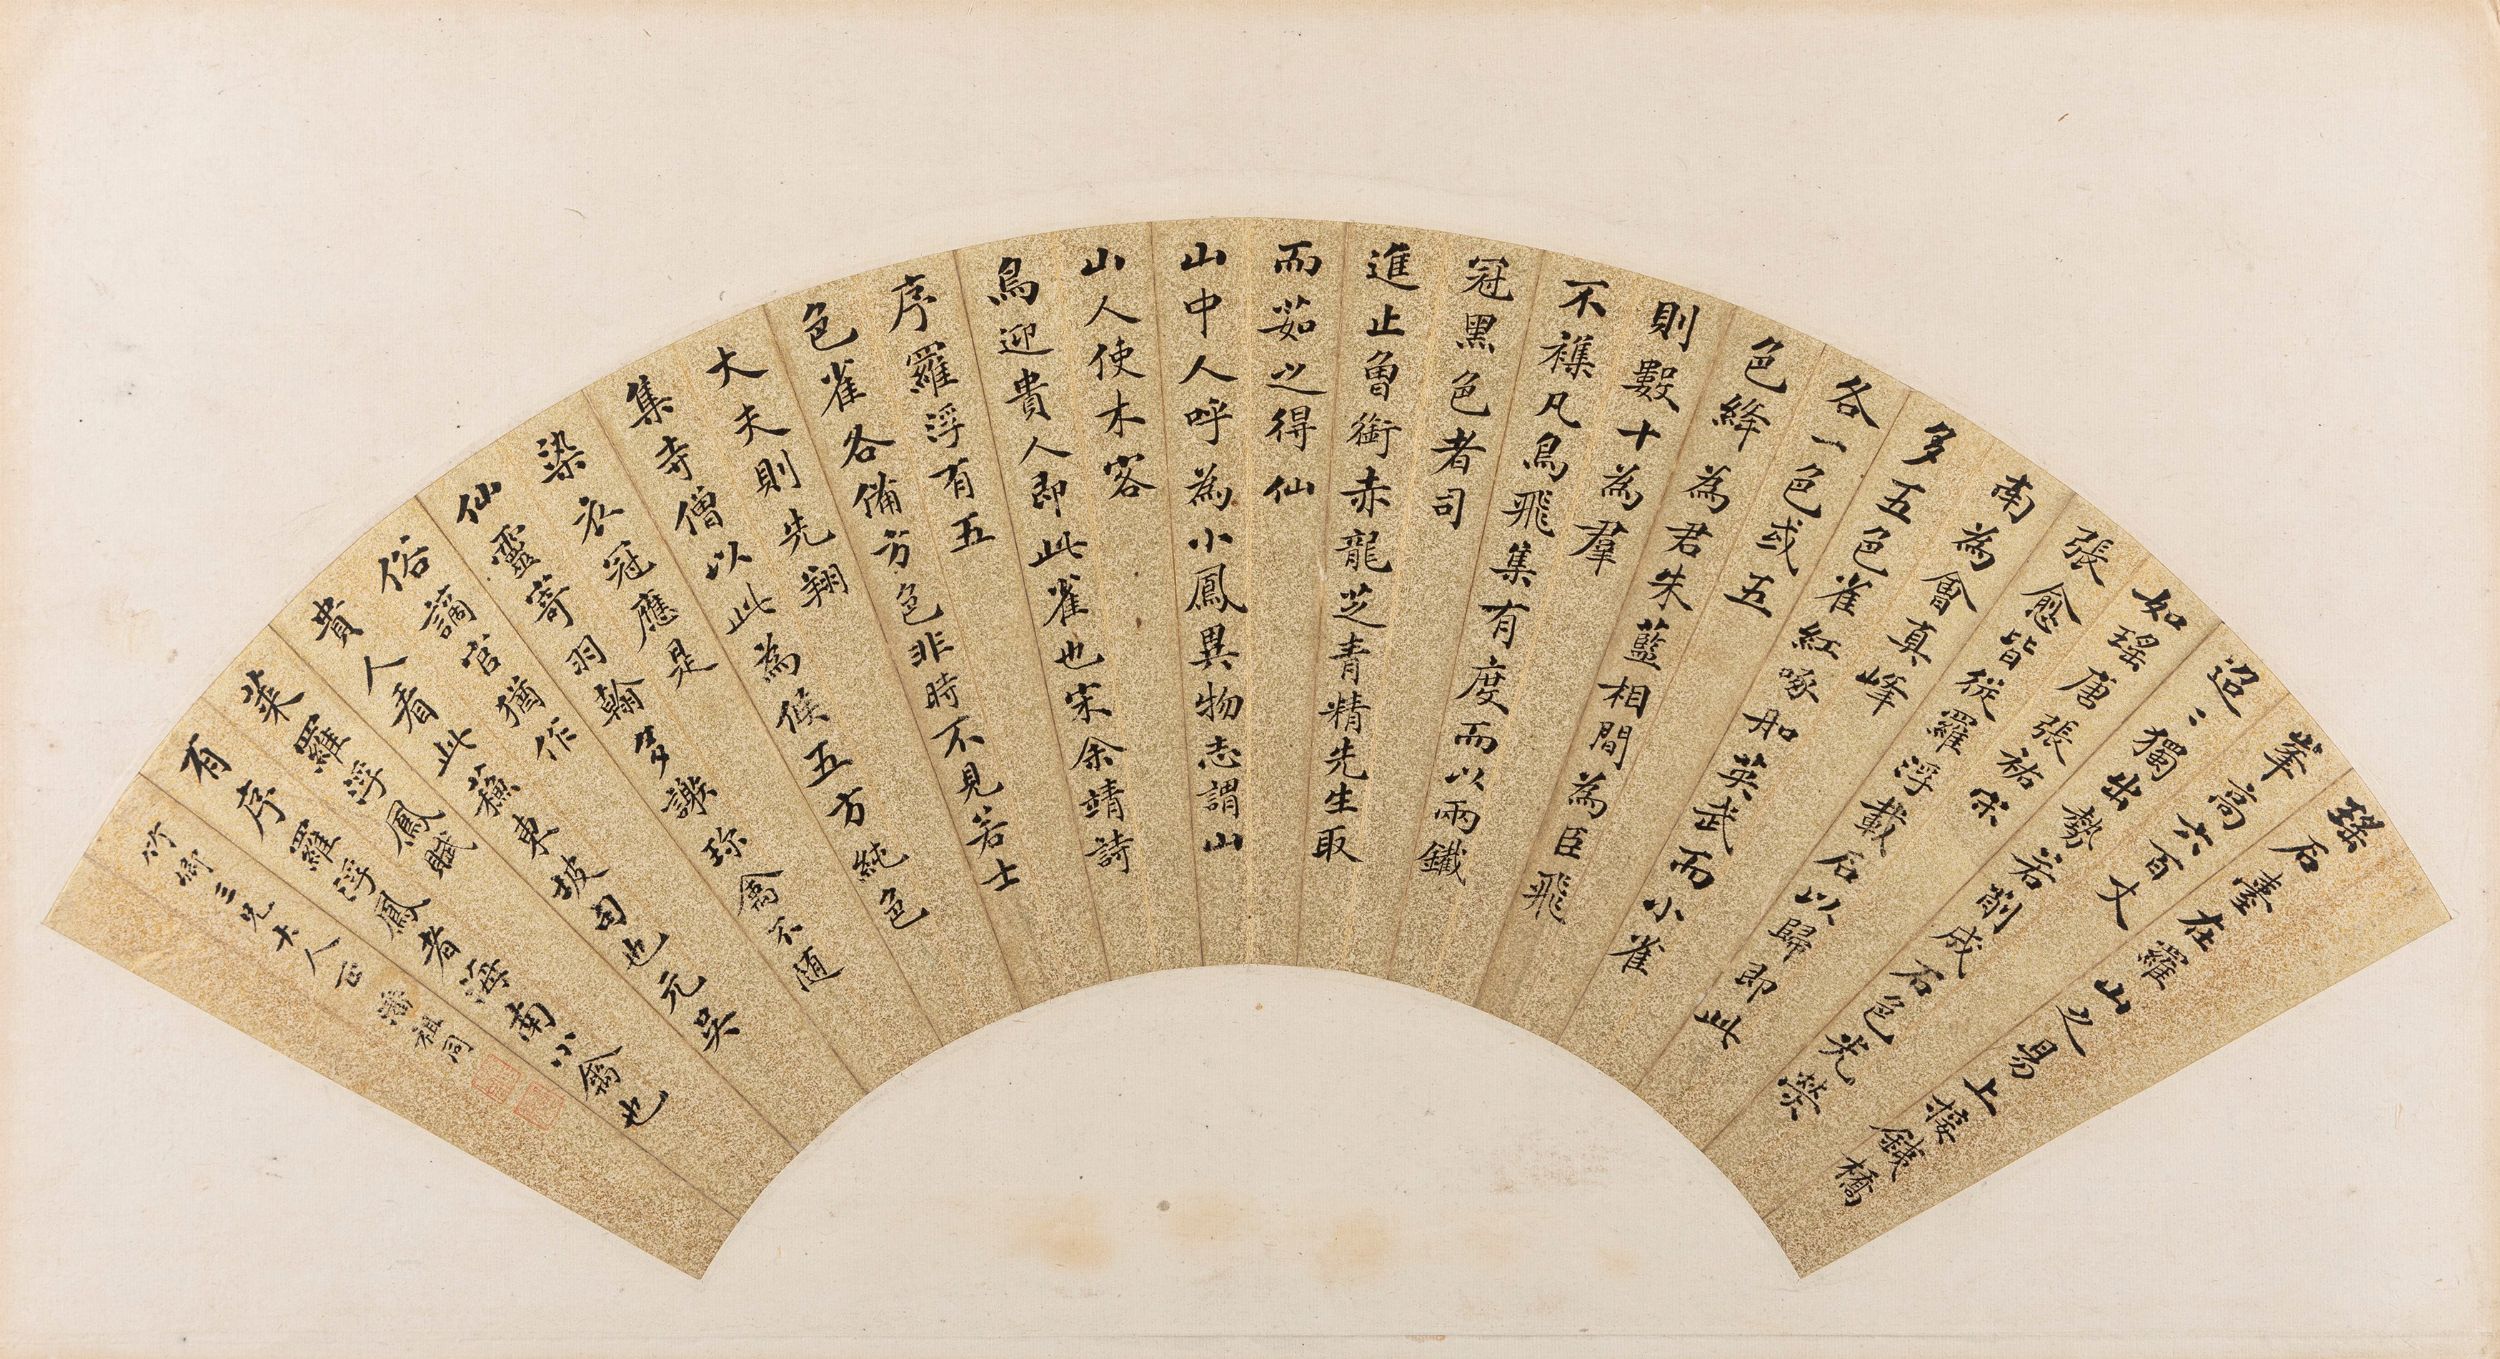 瑤石臺在羅山之易上接鐵橋
峯高六百丈
迢ミ獨出勢若削成石色光熒
如瑤唐張祐宋
張愈皆從羅浮載石以歸即此
南為會真峰
多五色雀紅啄如英武而小雀
各一色或五
色絳為君朱藍相間為臣飛
則數十為羣
不襍凡鳥飛集有度而以兩鐵
冠黑色者司
進止曾銜赤龍芝青精先生取
而茹之得仙
山中人呼為小鳳異物志謂山
山人使木客
鳥迎貴人即此雀也宋余靖詩
序羅浮有五
色雀各備方色非時不見若士
大夫則先翔
集寺僧以此為候五方純色
染衣冠應是
仙靈寄羽翰多謝珍禽不隨
俗謫官猶作
貴人看此蘇東坡句也元吳
萊羅浮鳳賦
有序羅浮鳳者海南小禽也
竹卿三兄大人正 潘祖同